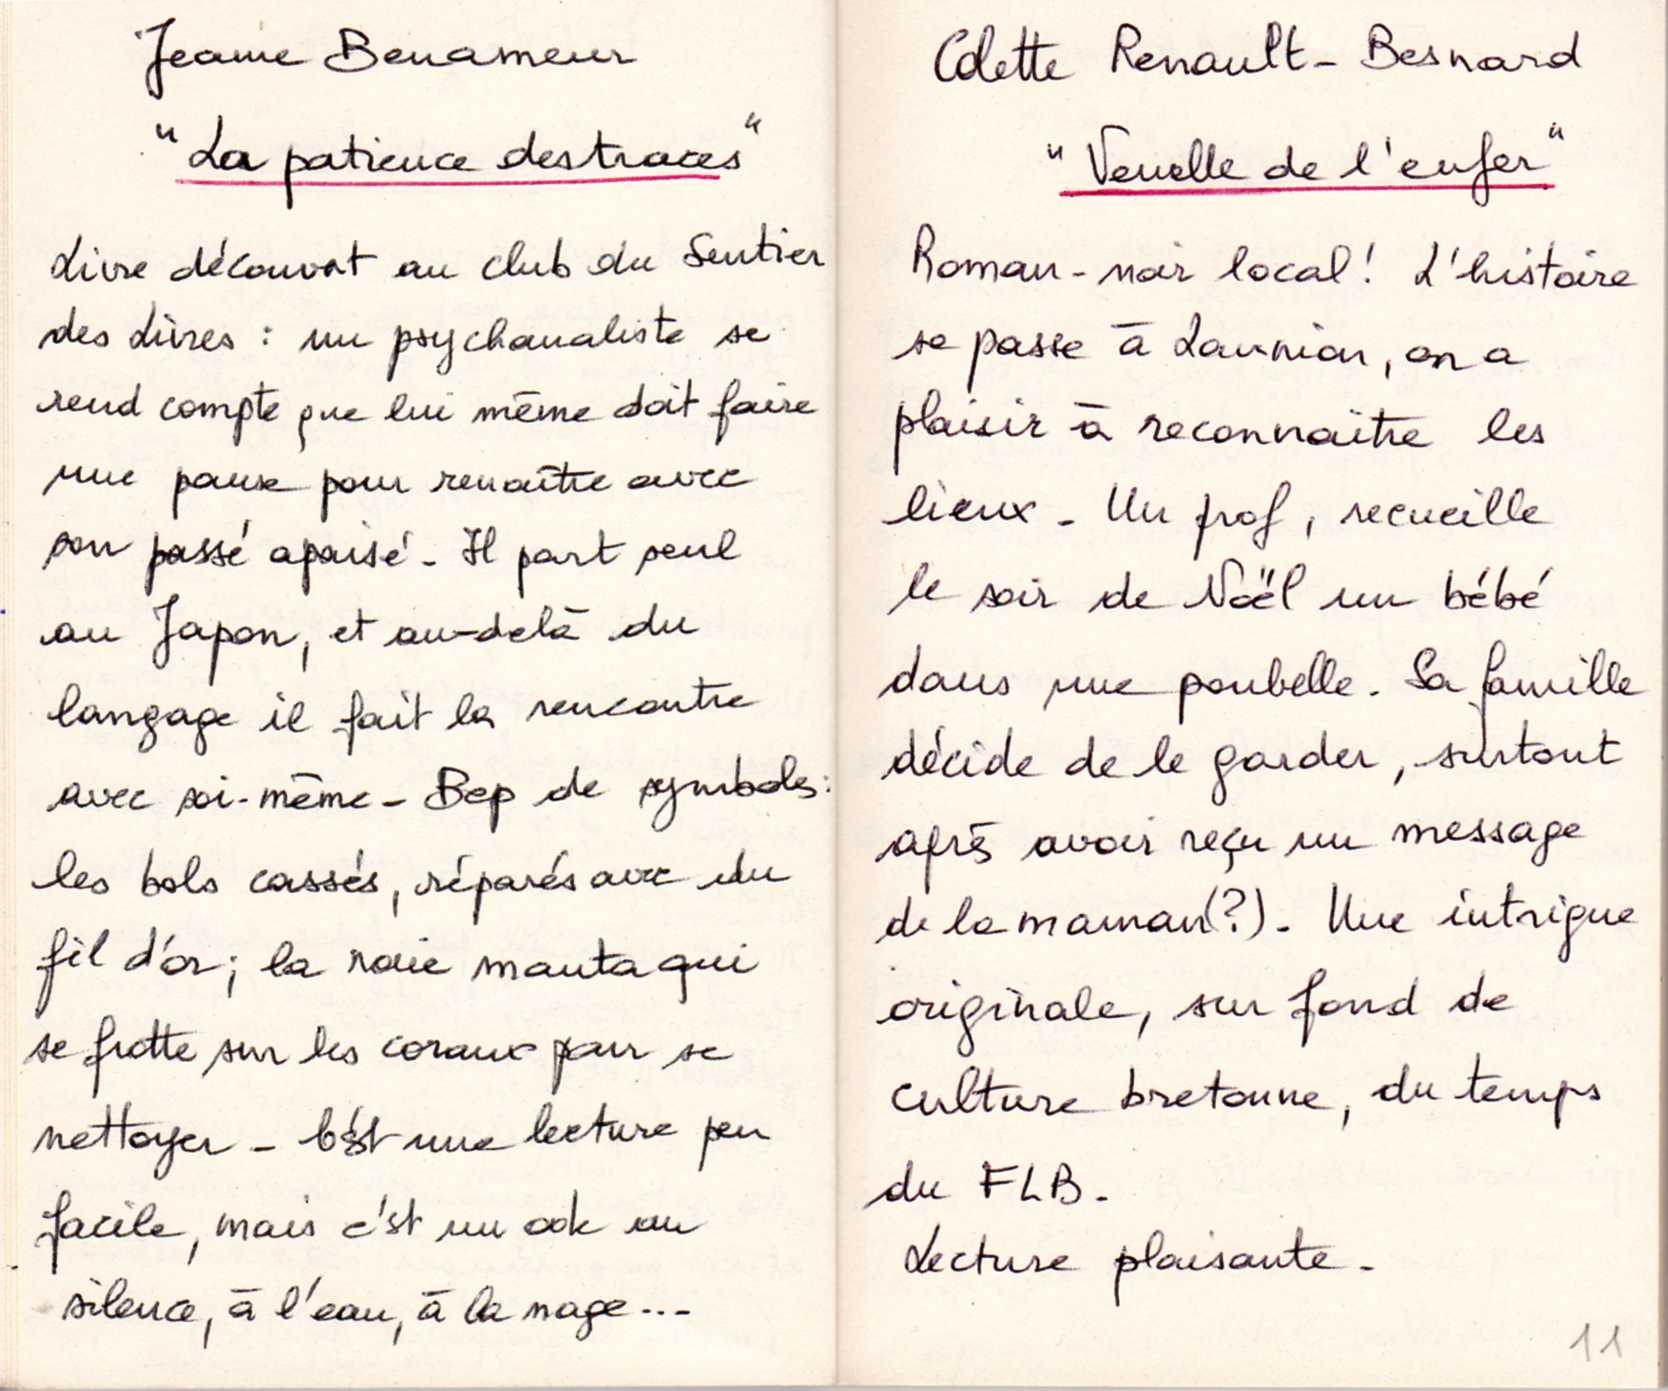 Jeanne Benameur
"La patience des traces"
Livre découvert au club du Sentier
des Livres : un psychanaliste se
rend compte que lui même doit faire
une pause pour renaître avec
son passé apaisé - Il part seul
au Japon, et au-delà du
langage il fait la rencontre
avec soi-même - Bcp de symboles :
les bols cassés, réparés avec du
fil d'or ; la raie manta qui
se frotte sur les coraux pour se
nettoyer - C'est une lecture peu
facile, mais c'est un ode au
silence, à l'eau, à la nage...
Colette Renault-Besnard
"Venelle de l'enfer"
Roman-noir local ! L'histoire
se passe à Lannion, on a
plaisir à reconnaître les
lieux - Un prof, recueille
le soir de Noël un bébé
dans une poubelle. Sa famille
décide de le garder, surtout
après avoir reçu un message
de la maman(?) - Une intrigue
originale, sur fond de
culture bretonne, du temps
du FLB -
Lecture plaisante -
11